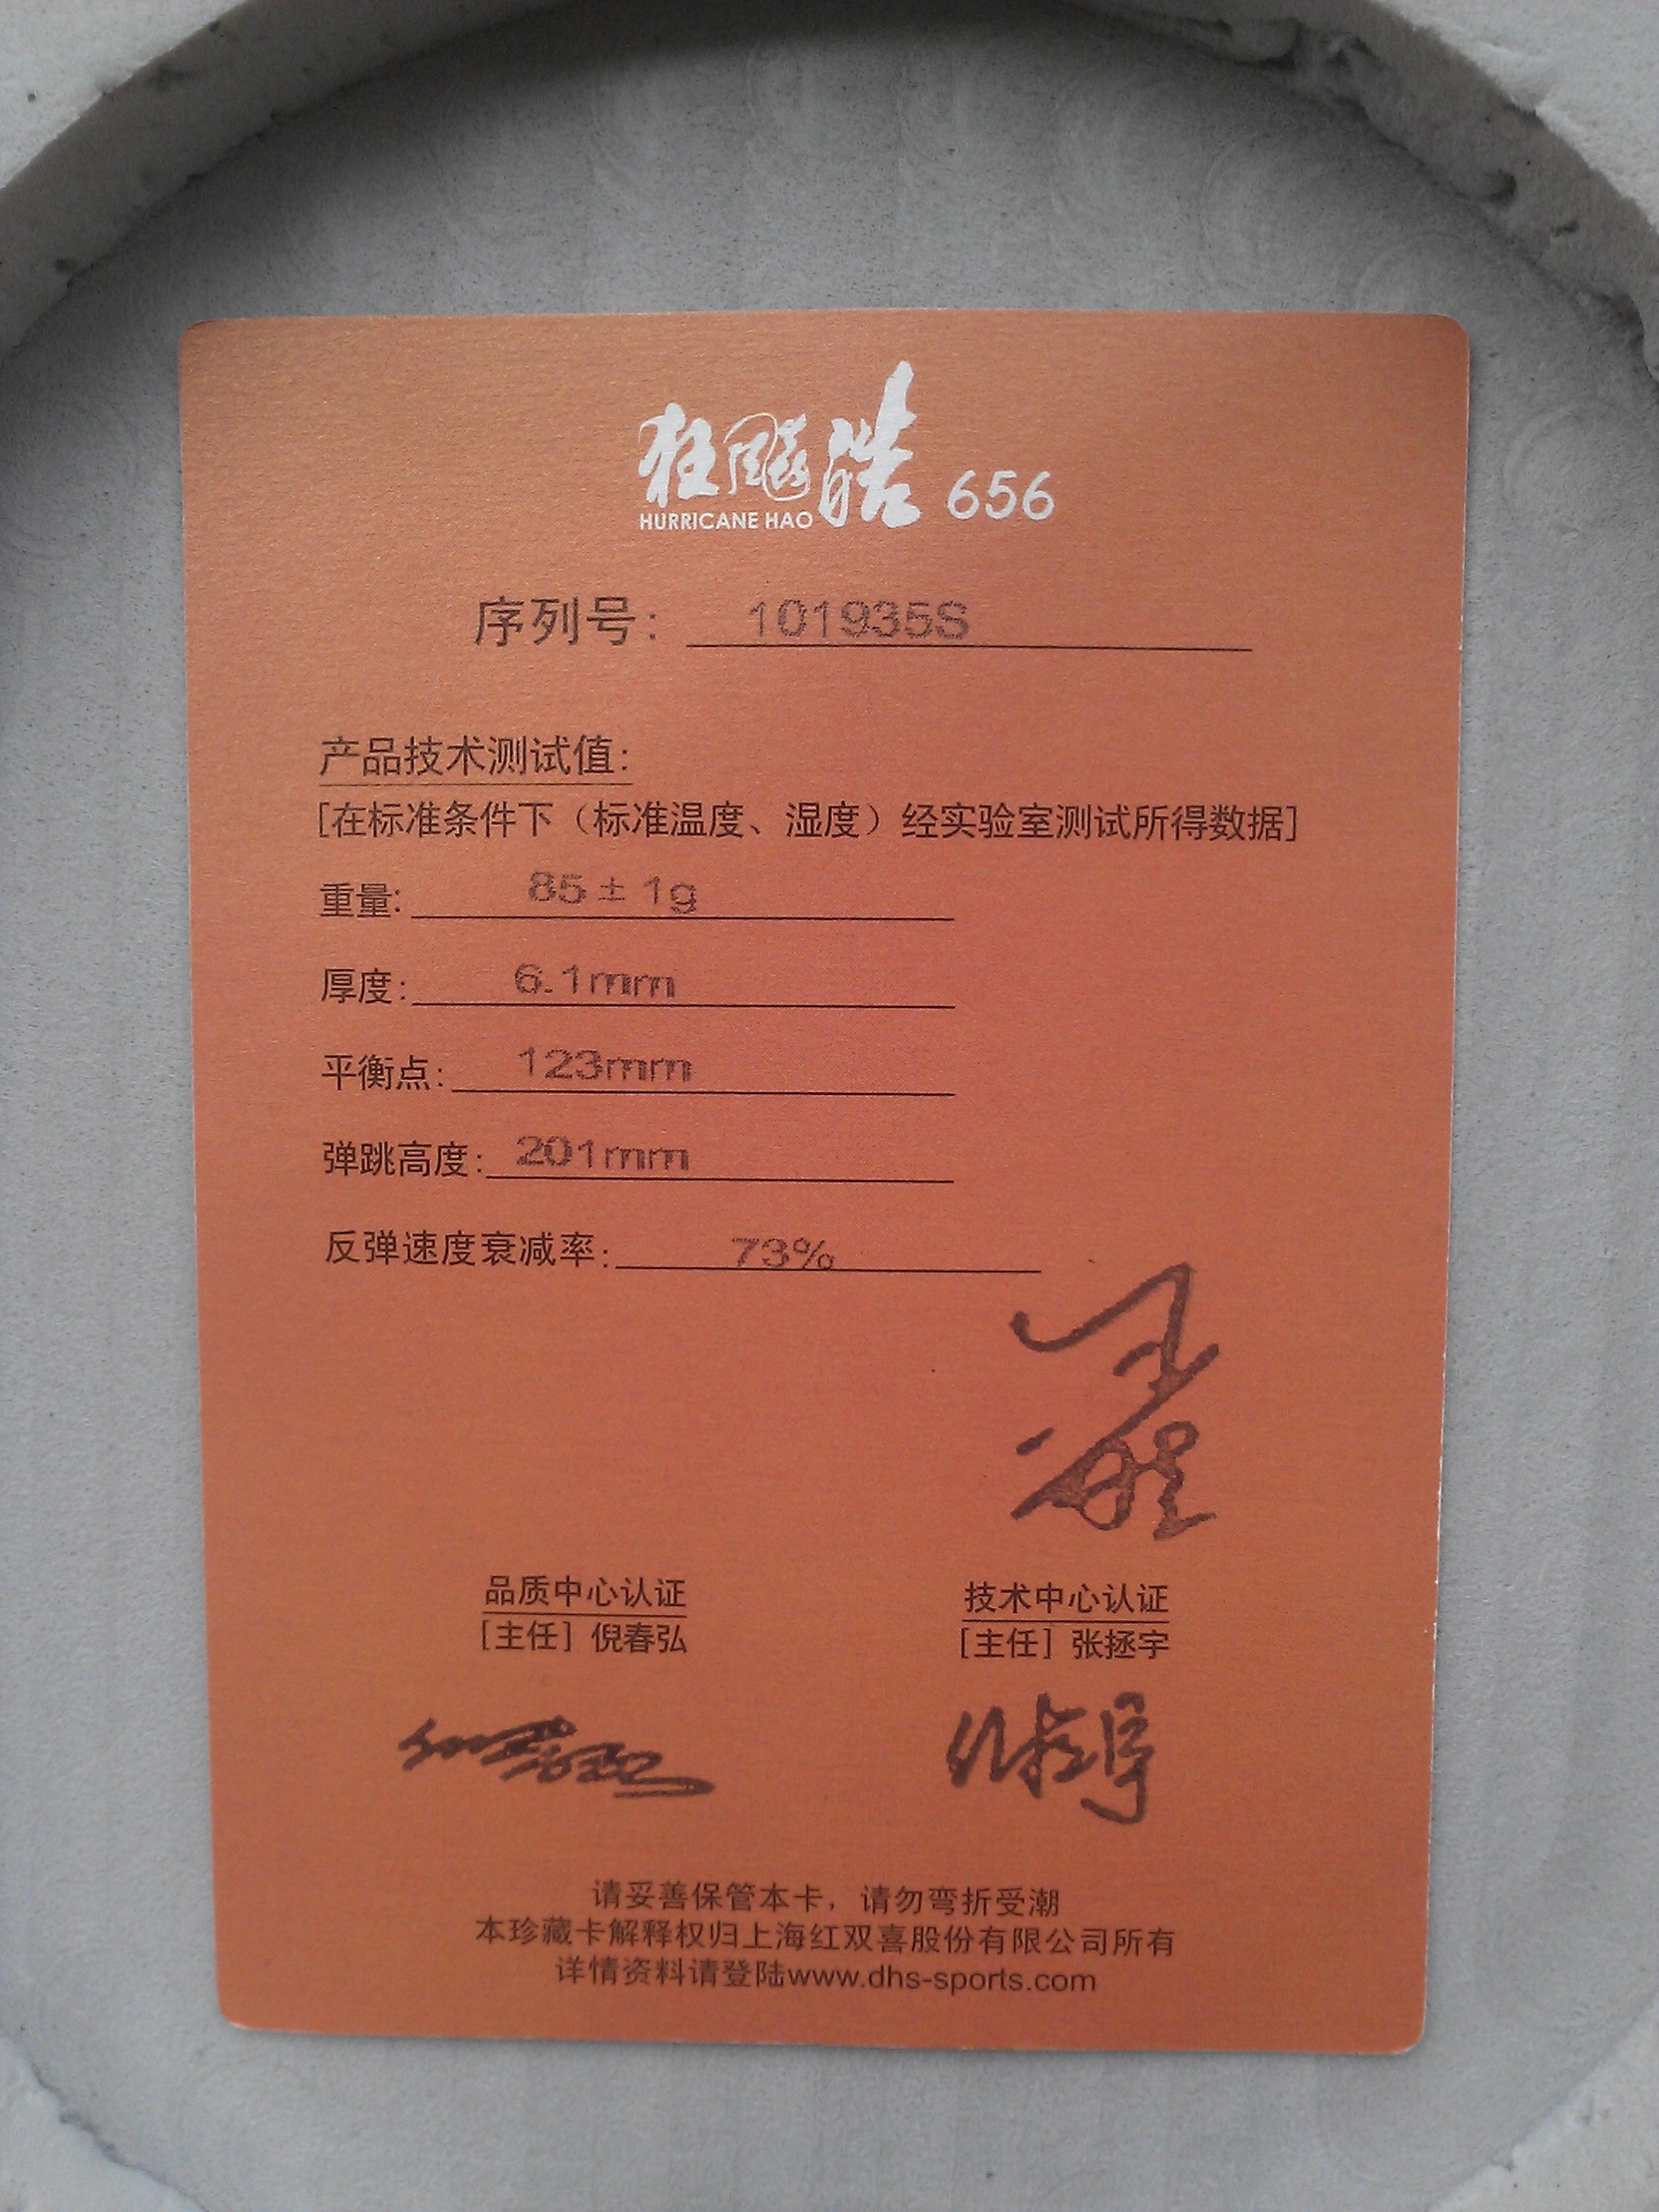 狂飚皓 656
HURRICANE HAO
序列号: 101935S
产品技术测试值:
[在标准条件下（标准温度、湿度）经实验室测试所得数据]
重量: 85±1g
厚度: 6.1mm
平衡点: 123mm
弹跳高度: 201mm
反弹速度衰减率: 73%
品质中心认证
[主任] 倪春弘
技术中心认证
[主任] 张拯宇
请妥善保管本卡，请勿弯折受潮
本珍藏卡解释权归上海红双喜股份有限公司所有
详情资料请登陆www.dhs-sports.com